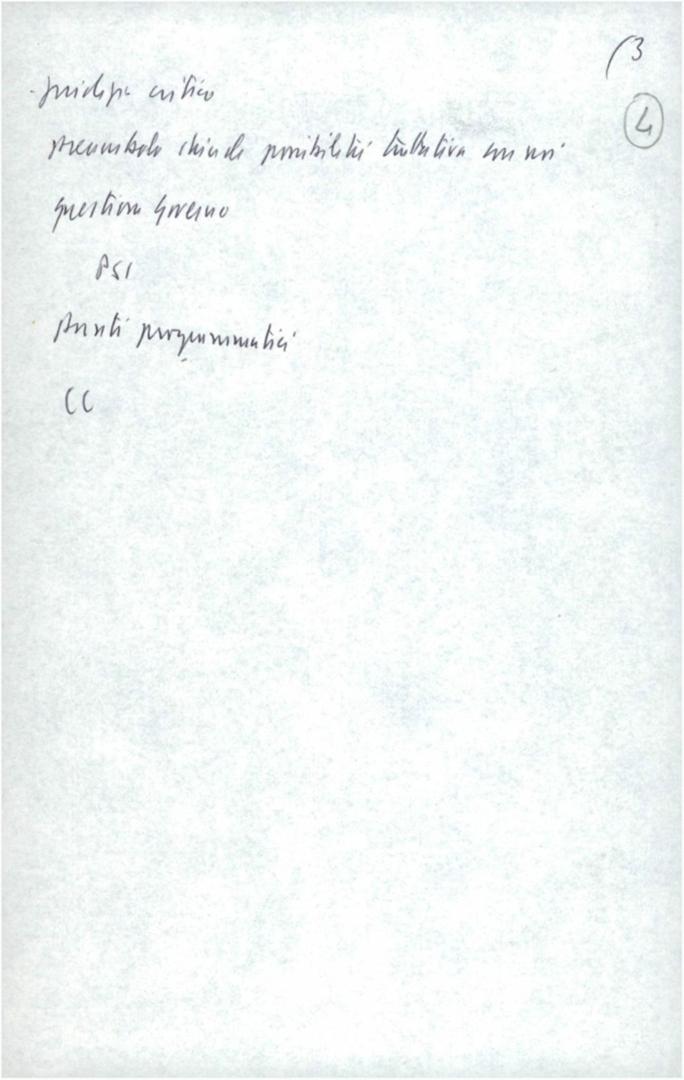 (3
4
- critico
preambolo chiude possibilità trattativa con noi
questione Governo
PSI
punti programmatici
CC